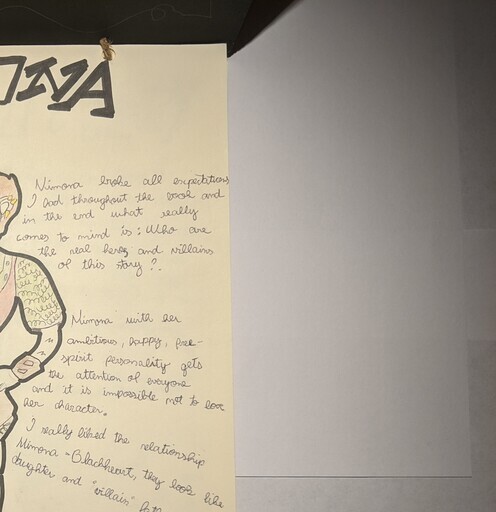 ONA
Nimona broke all expectations
I had throughout the book and
in the end what really
comes to mind is: Who are
the real heros and villains
of this story?.
Nimona with her
ambitious, happy, free-
spirit personality gets
the attention of everyone
and it is impossible not to love
her character.
I really liked the relationship
Nimona - Blackheart, they look like
daughter and "villain"